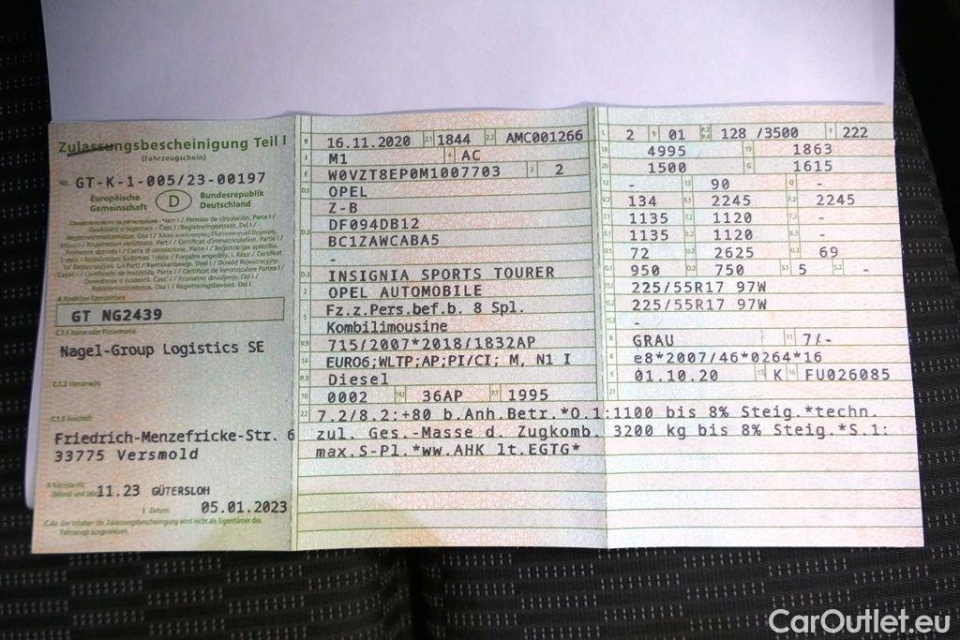 Zulassungsbescheinigung Teil I
(Fahrzeugschein)
Nr. GT-K-1-005/23-00197
Europäische Gemeinschaft D Bundesrepublik Deutschland
GT NG2439
Nagel-Group Logistics SE
Friedrich-Menzefricke-Str. 6
33775 Versmold
11.23 GÜTERSLOH
05.01.2023
16.11.2020 2.1 1844 2.2 AMC001266
M1 4 AC
W0VZT8EP0M1007703 3 2
OPEL
Z-B
DF094DB12
BC1ZAWCABA5
-
INSIGNIA SPORTS TOURER
OPEL AUTOMOBILE
Fz.z.Pers.bef.b. 8 Spl.
Kombilimousine
715/2007*2018/1832AP
EURO6;WLTP;AP;PI/CI; M, N1 I
Diesel
0002 36AP P.1 1995
L 2 9 01 128 /3500 T 222
18 4995 19 1863
20 1500 G 1615
- 13 90 Q -
134 2245 2245
1135 1120 -
1135 1120 -
72 2625 69
950 750 S.1 5 S.2 -
225/55R17 97W
225/55R17 97W
-
GRAU 11 7/-
e8*2007/46*0264*16
01.10.20 17 K 16 FU026085
22 7.2/8.2:+80 b.Anh.Betr.*O.1:1100 bis 8% Steig.*techn.
zul. Ges.-Masse d. Zugkomb. 3200 kg bis 8% Steig.*S.1:
max.S-Pl.*ww.AHK lt.EGTG*
CarOutlet.eu